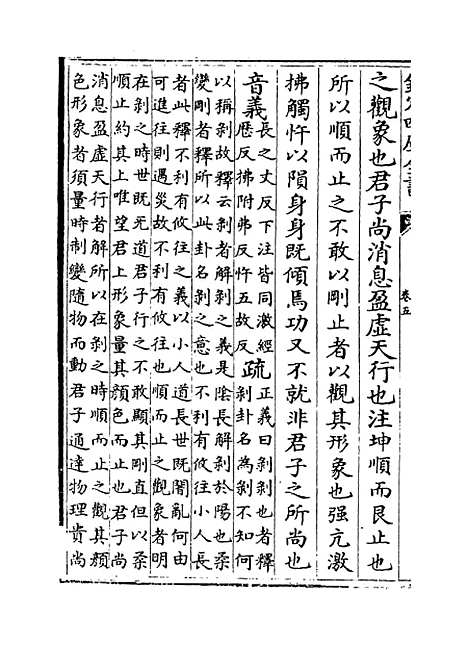 欽定四庫全書
卷五
之觀象也君子尚消息盈虛天行也注坤順而艮止也
所以順而止之不敢以剛止者以觀其形象也强亢激
拂觸忤以隕身身既傾焉功又不就非君子之所尚也
音義
長之丈反下注皆同激經
歷反拂附弗反忤五故反
疏
正義曰剝剝也者釋
剝卦名為剝不知何
以稱剝故釋云剝者解剝之義是陰長解剝於陽也柔
變剛者釋所以此卦名剝之意也不利有攸往小人長
者此釋不利有攸往之義以小人道長世既闇亂何由
可進往則遇災故不利有攸往也順而止之觀象者明
在剝之時世既无道君子行之不敢顯其剛直但以柔
順止約其上唯望君上形象量其顏色而止也君子尚
消息盈虛天行者解所以在剝之時順而止之觀其顏
色形象者須量時制變隨物而動君子通達物理貴尚